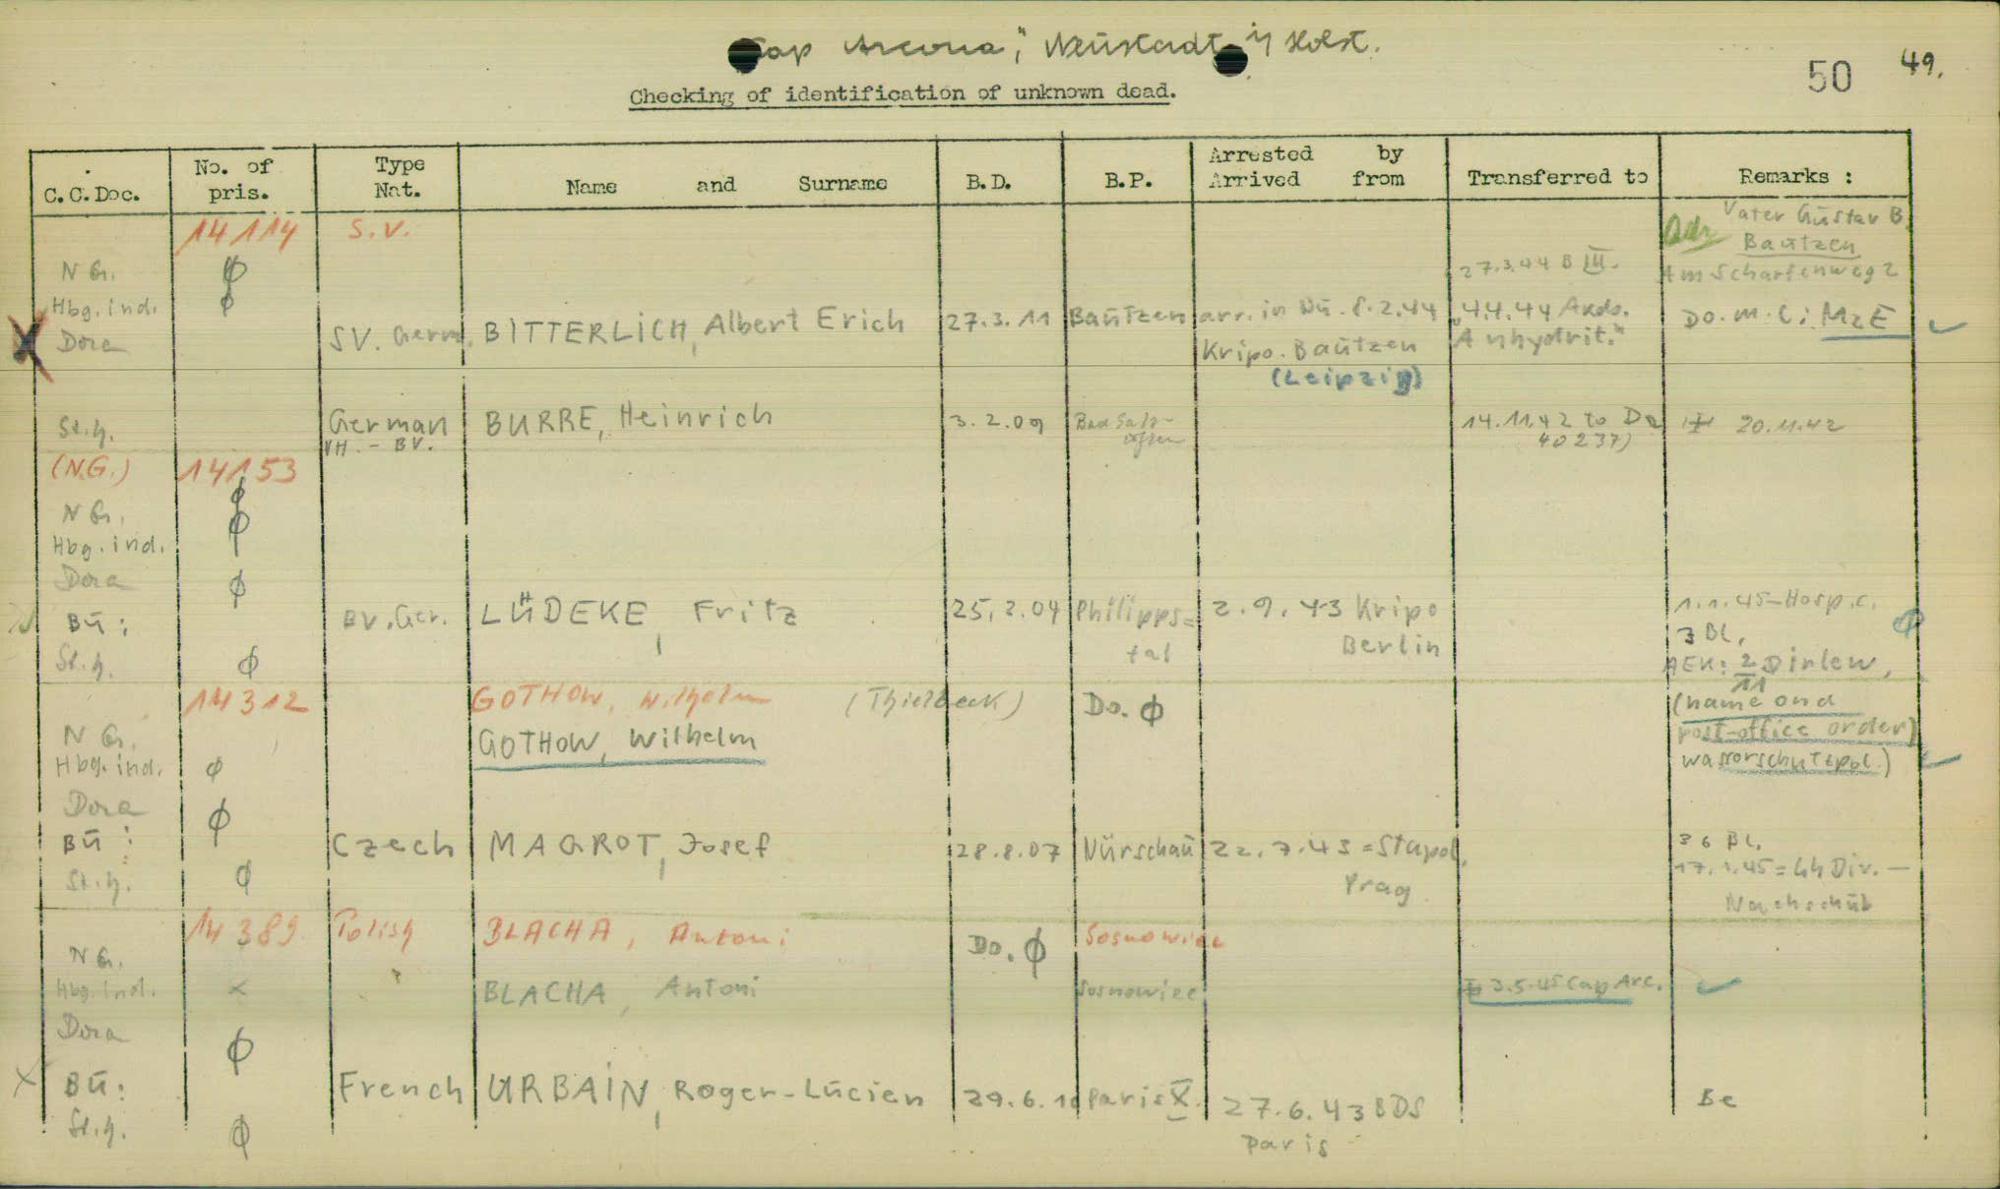 "Cap Arcona", Neustadt i/ Holst.
50 49.
Checking of identification of unknown dead.
C.C.Doc. No. of pris. Type Nat. Name and Surname B.D. B.P. Arrested by Arrived from Transferred to Remarks :
14114 S.V.
Adr. Vater Gustav B.
Bautzen
N G. ϕ 27.3.44 B III. Am Schartenweg 2
Hbg. ind. ϕ
Dora SV. Germ. BITTERLICH, Albert Erich 27.3.11 Bautzen arr. in Nü. 8.2.44 4.4.44 Akdo. Do. M. C: MzE
Kripo. Bautzen "Anhydrit."
(Leipzig)
St.h. German BURRE, Heinrich 3.2.09 Bad Salz- 14.11.42 to Da 20.11.42
VH. - BV. 40237)
(N.G.) 14153
ϕ
N G. ϕ
Hbg. ind.
Dora ϕ
Bü: BV. Ger. LÜDEKE, Fritz 25.2.04 Philipps= 2.9.43 Kripo 1.1.45-Hosp.c.
tal Berlin 3 BL.
St.h. ϕ AEK: 2 Dirlew.
11
14312 GOTHOW, Wilhelm (Thielbeck) Do. ϕ (name and
N G. GOTHOW, Wilhelm post-office order)
Hbg. ind. ϕ wasserschutzpol.)
Dora ϕ
Bü: Czech MAGROT, Josef 28.8.07 Nürschau 22.7.43 = Stapol. 36 BL.
St.h. ϕ Prag 17.1.45= Div. -
Nachschub
14389 Polish BLACHA, Antoni Do. ϕ Sosnowiec
N G.
Hbg. ind. x " BLACHA, Antoni Sosnowiec 3.5.45 Cap Arc.
Dora ϕ
Bü: French URBAIN, Roger-Lucien 29.6.10 Paris X. 27.6.43 BDS Be
St.h. ϕ Paris